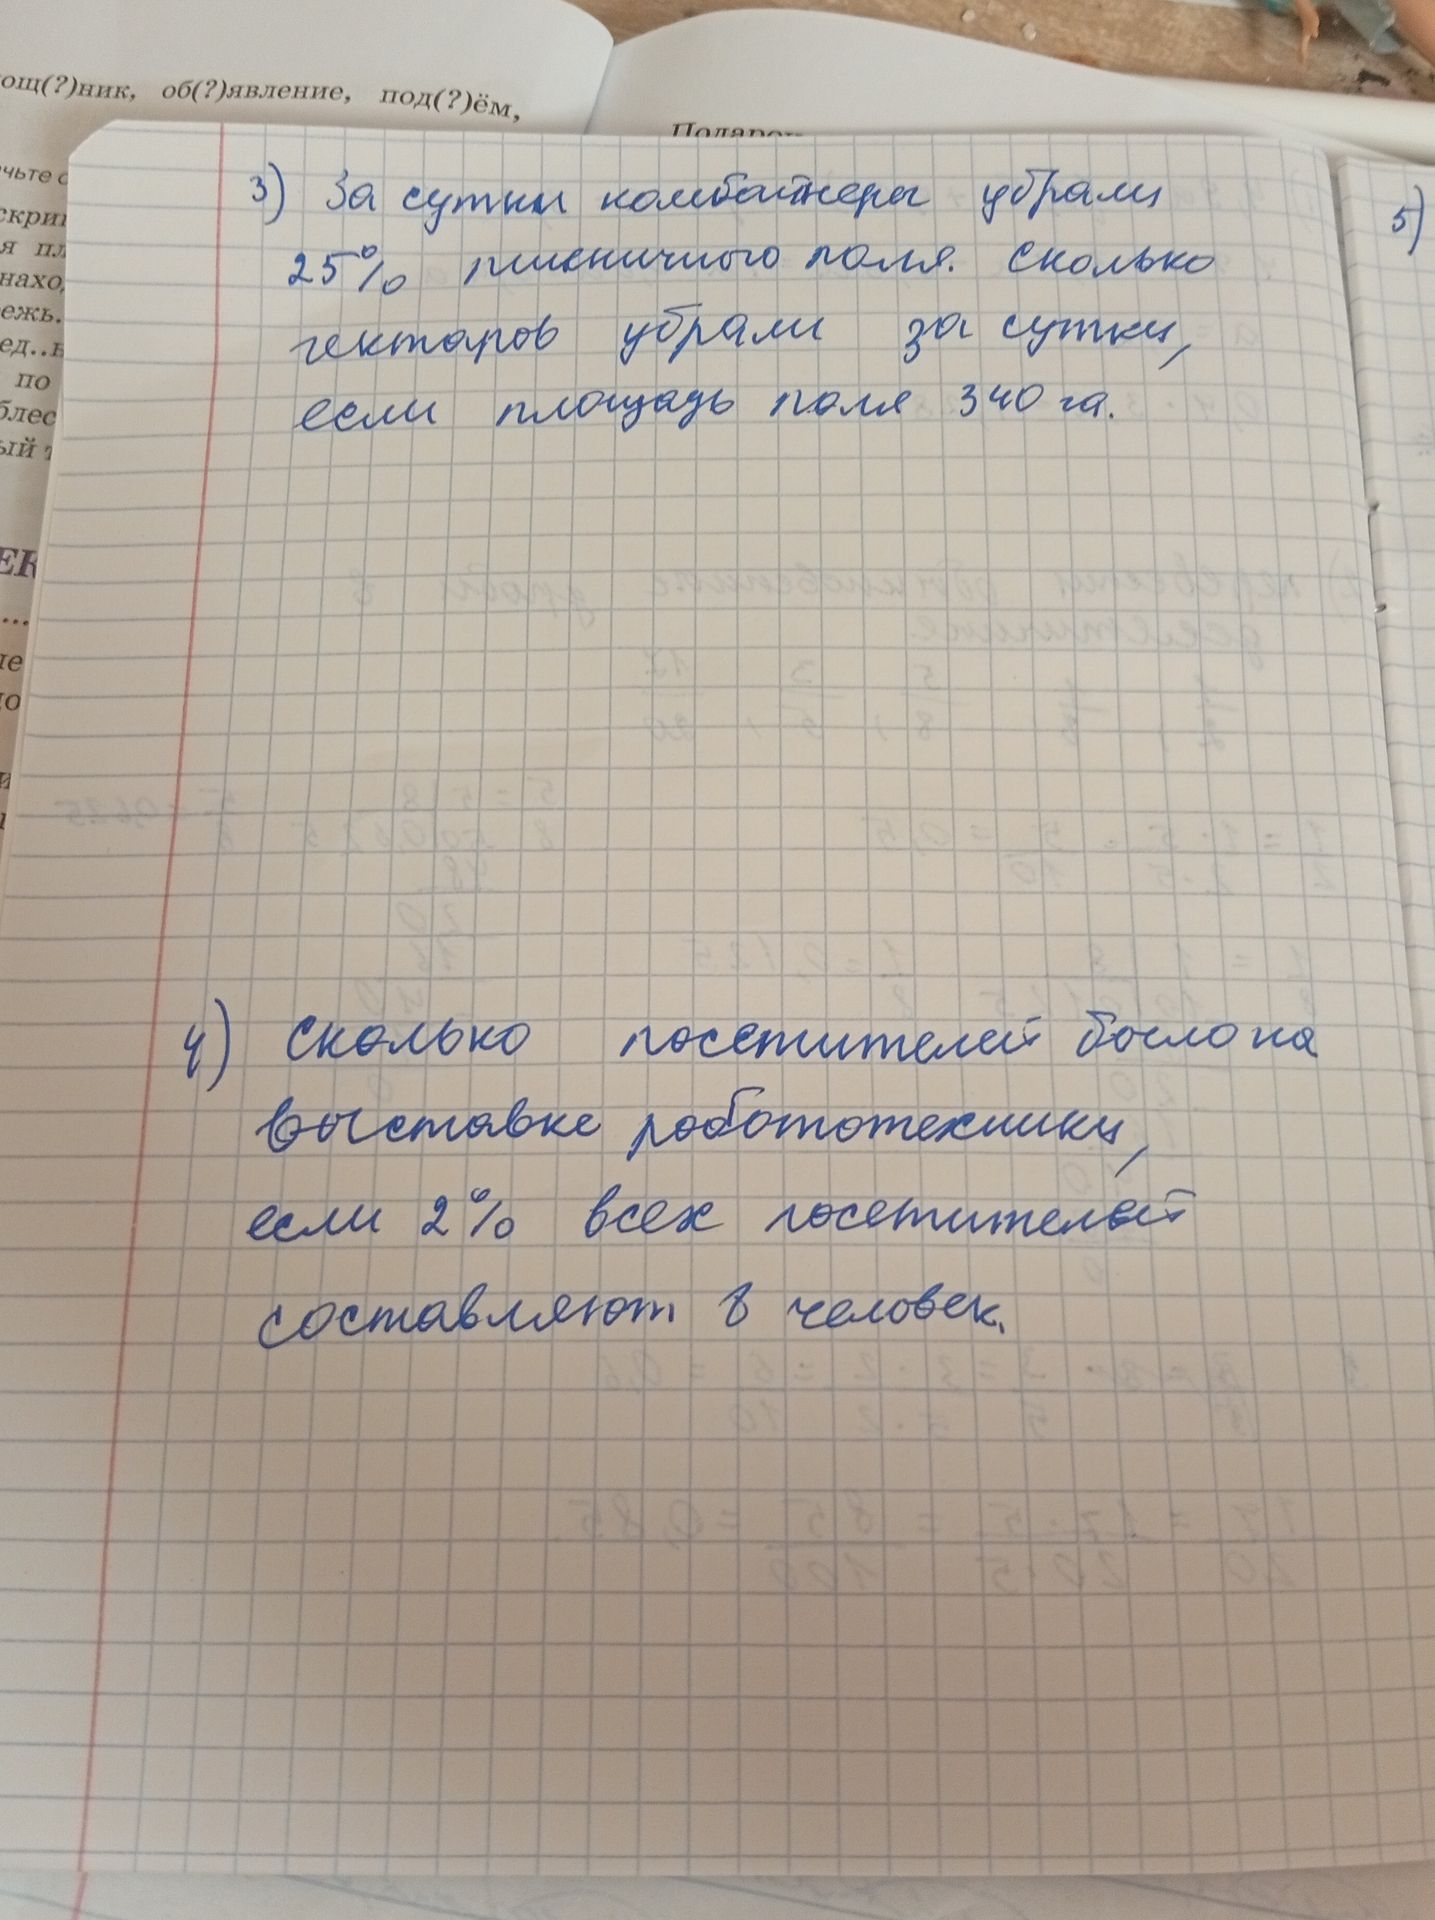 ник, об(?)явление, под(?)ём,
3) За сутки комбайнеры убрали
25% пшеничного поля. Сколько
гектаров убрали за сутки,
если площадь поля 340 га.
5)
4) Сколько посетителей было на
выставке робототехники,
если 2% всех посетителей
составляют 8 человек.